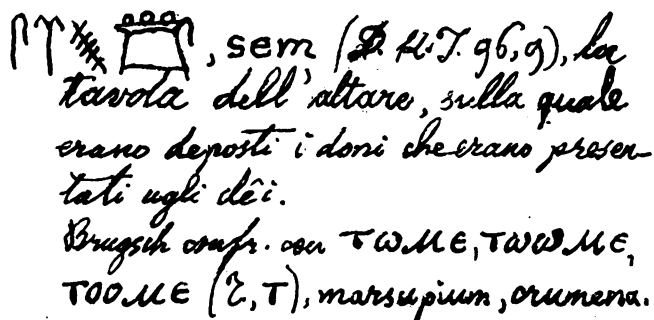 , sem (D. H. J. 96, 9), la
tavola dell'altare, sulla quale
erano deposti i doni che erano presen-
tati agli dêi.
Brugsch confr. con ⲧⲱⲙⲉ, ⲧⲱⲱⲙⲉ,
ⲧⲟⲟⲙⲉ (ⲧ), marsupium, crumena.